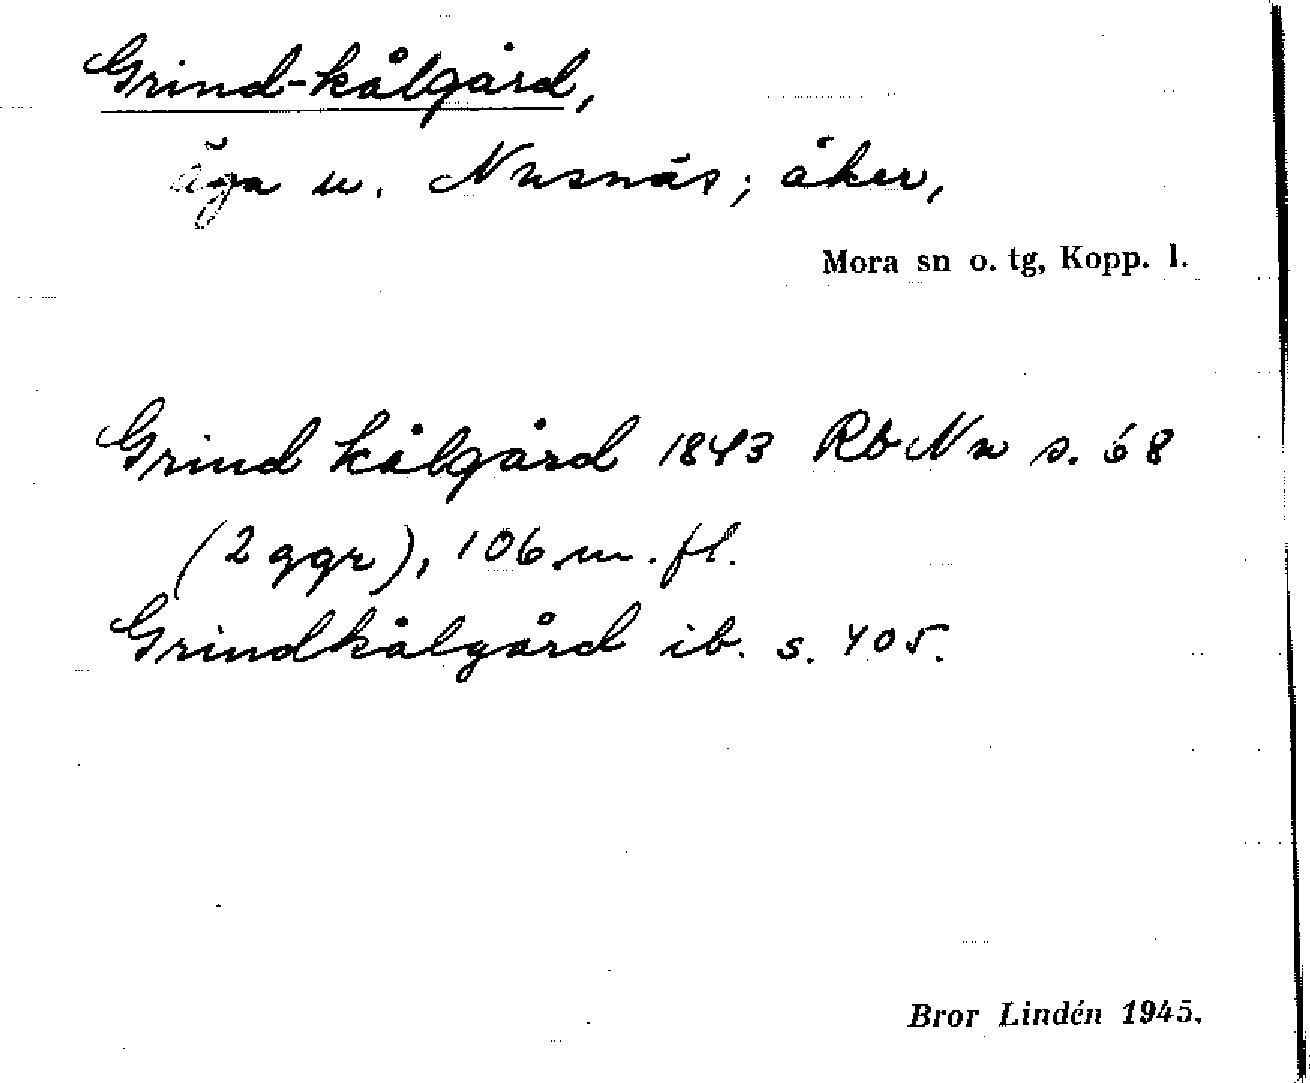 Grind-kålgård,
äga u. Nusnäs; åker,
Mora sn o. tg, Kopp. l.
Grind kålgård 1843 RbNu s. 68
(2 ggr), 106 m. fl.
Grindkålgård ib. s. 405.
Bror Lindén 1945.